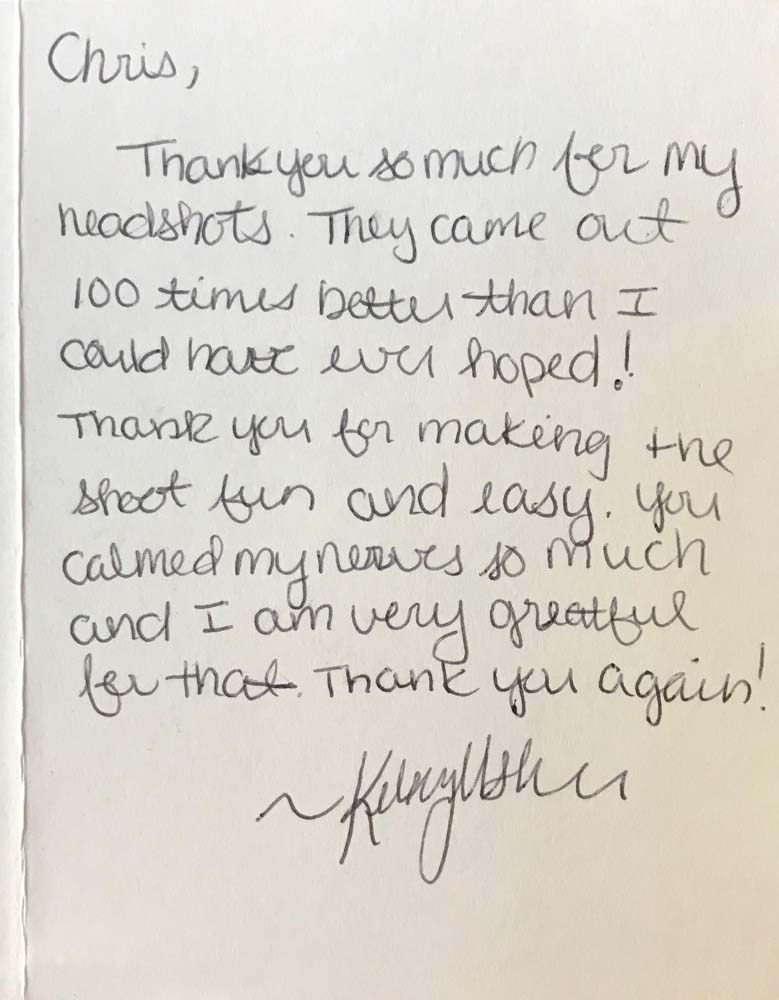 Chris,
Thank you so much for my
headshots. They came out
100 times better than I
could have ever hoped!
Thank you for making the
shoot fun and easy. You
calmed my nerves so much
and I am very greatful
for that. Thank you again!